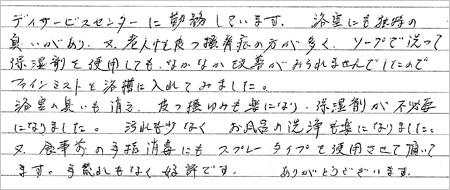 デイサービスセンターに勤務しています。 浴室にも独特の
臭いがあり、又、老人性皮フ掻痒症の方が多く、ソープで洗って
保湿剤を使用しても、なかなか改善がみられませんでしたので
ファインミストを浴槽に入れてみました。
浴室の臭いも消え、皮フ掻ゆみも楽になり、保湿剤が不必要
になりました。 汚れも少なく お風呂の洗浄も楽になりました。
又、食事前の手指消毒にも スプレータイプを使用させて頂いて
ます。手荒れもなく好評です。 ありがとうございます。